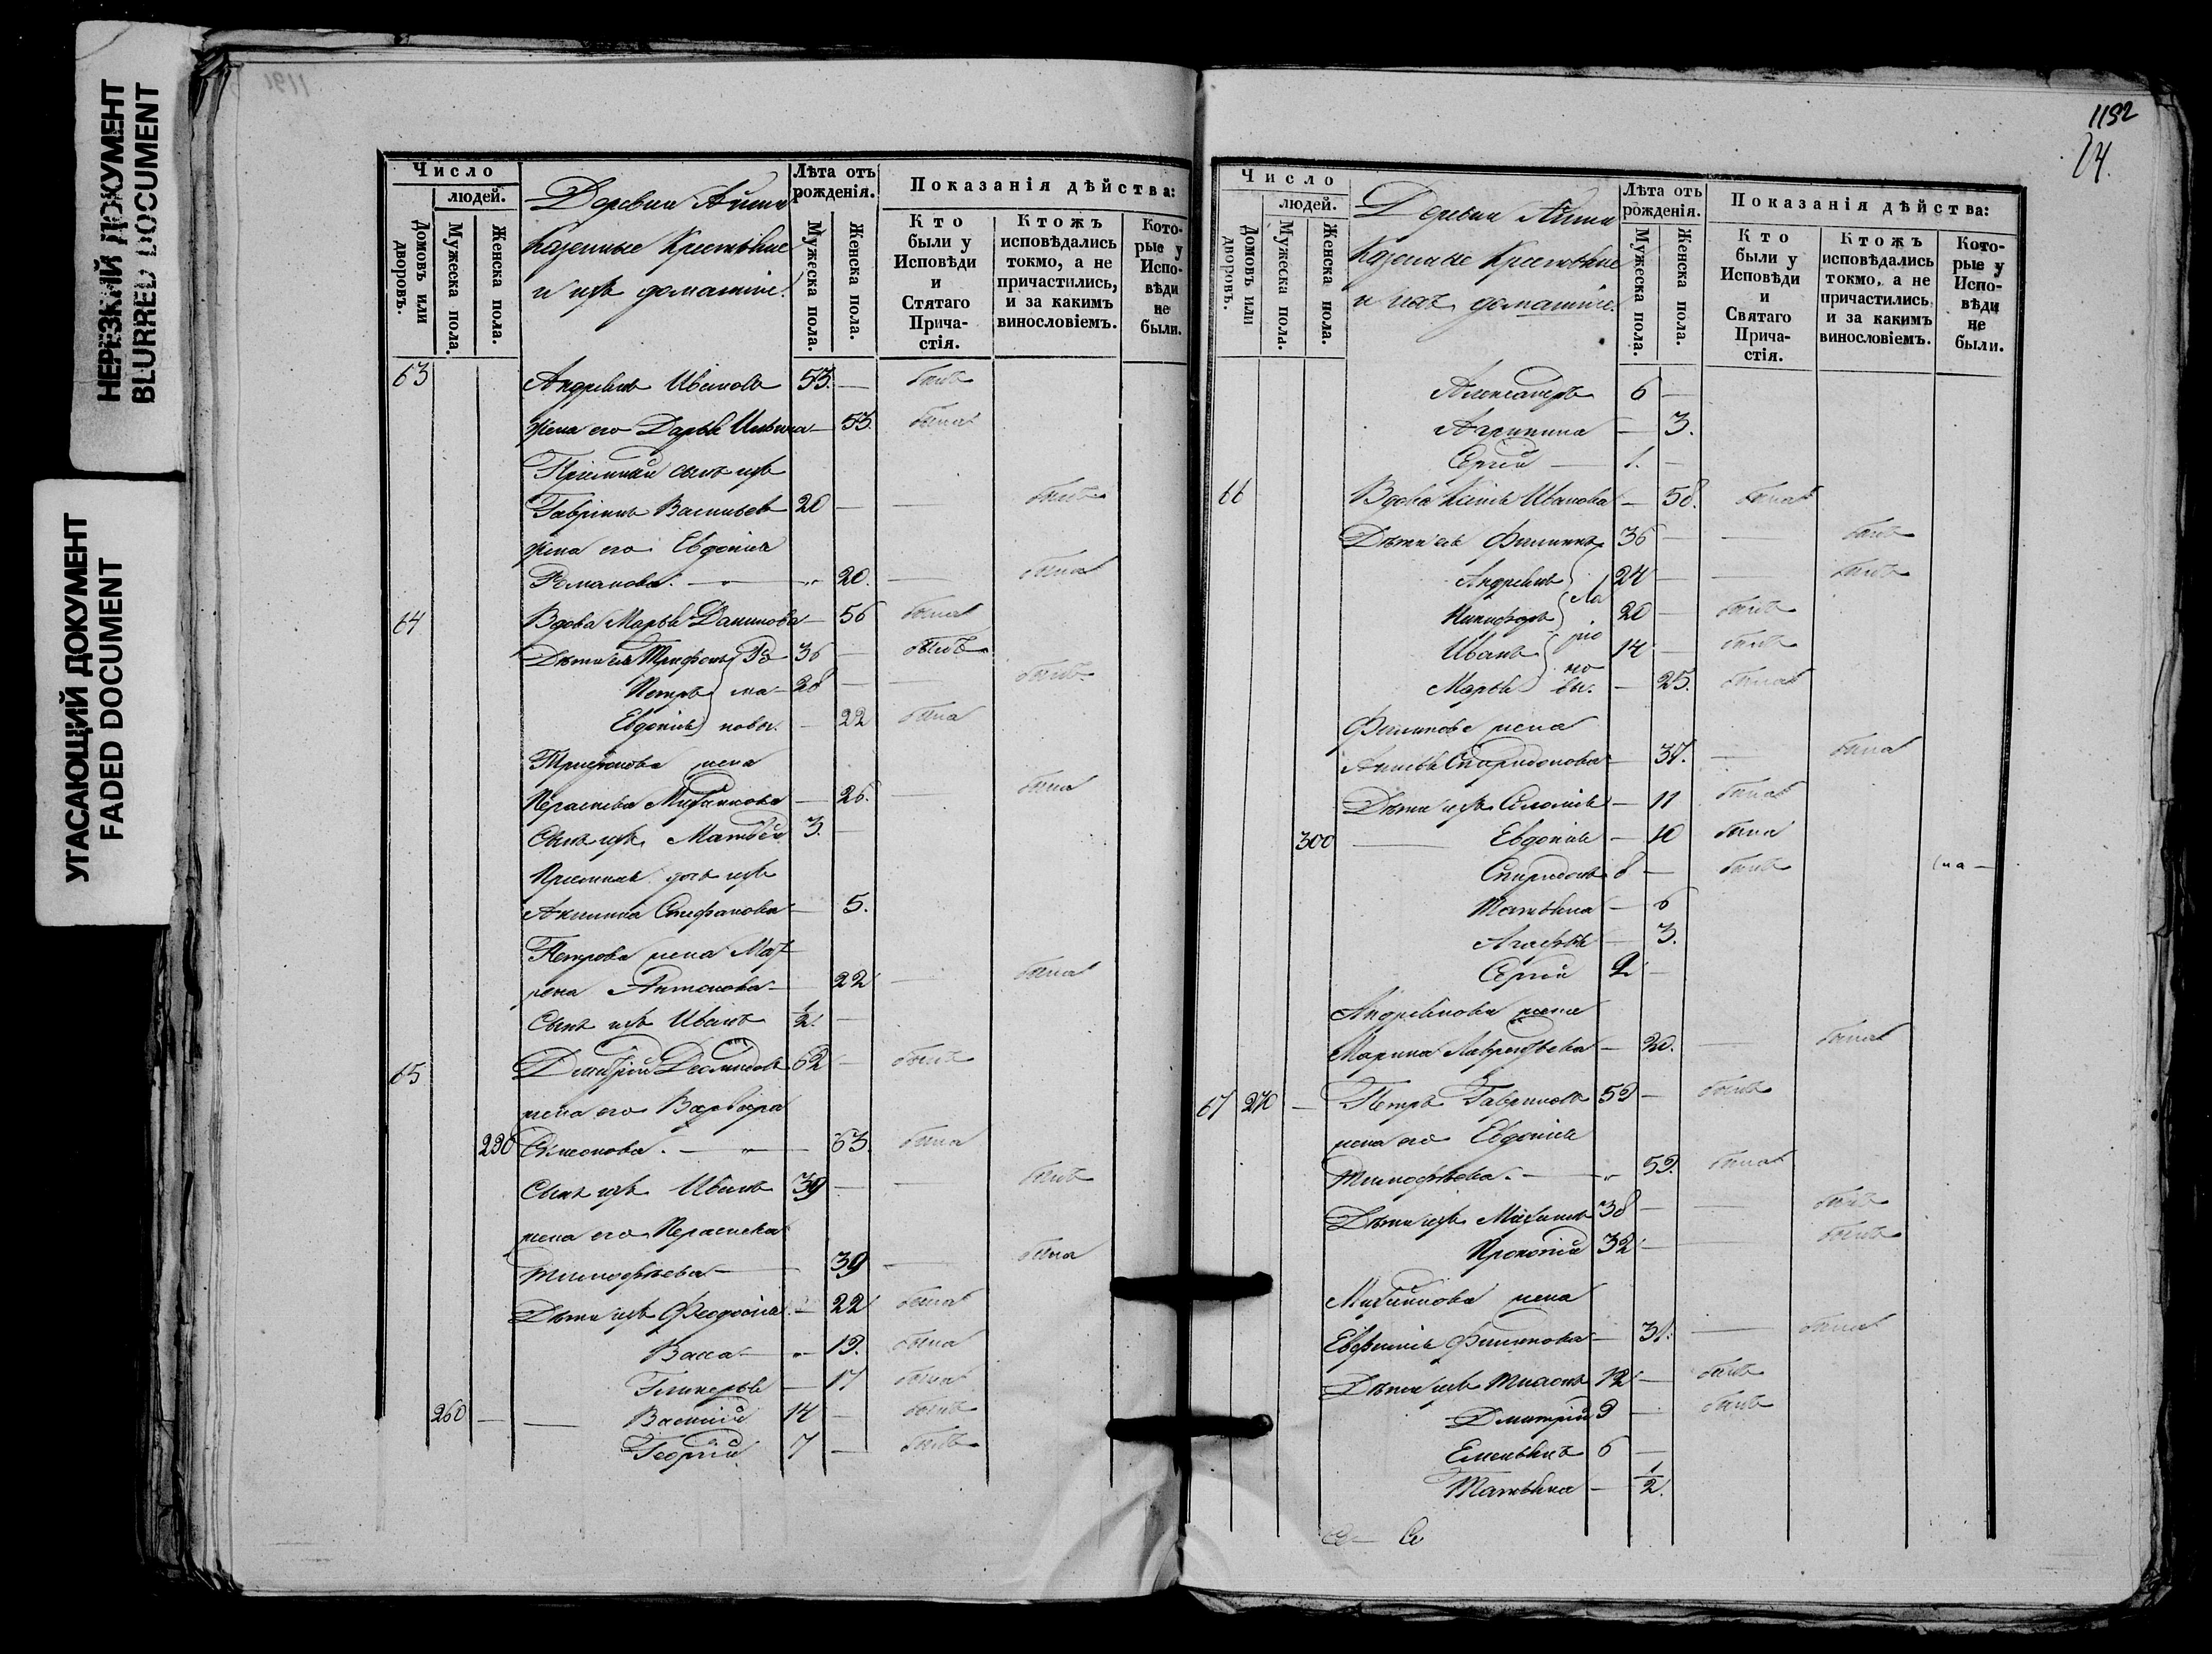 НЕРЕЗКИЙ ДОКУМЕНТ
BLURRED DOCUMENT
УГАСАЮЩИЙ ДОКУМЕНТ
FADED DOCUMENT
Число
людей.
Домовъ или дворовъ.
Мужеска пола.
Женска пола.
Деревни
Казенные Крестьяне
и ихъ домашніе.
Лѣта отъ рожденія.
Мужеска пола.
Женска пола.
Показанія дѣйства:
Кто были у Исповѣди и Стятаго Прича-стія.
Ктожъ исповѣдались токмо, а не причастились, и за какимъ винословіемъ.
Кото-рые у Испо-вѣди не были.
63 Андреянъ Ивановъ 53. — былъ
жена его Дарья Ильина — 53. была
Пріемный сынъ ихъ
Гавріилъ Васильевъ 20 — — былъ
жена его Евдокія
Романова. — „ — „ 20. — была
64 Вдова Марья Данилова — 56 была
Дѣти ея Трифонъ Ро 36 — былъ
Петръ ма- 28 — — былъ
Евдокія новы. — 22 была
Трифонова жена
Параскева Михайлова — 26. — была
Сынъ ихъ Матвѣй 3. —
Пріемная дочь ихъ
Акилина Стефанова — 5.
Петрова жена Мат-
рона Антонова — 22 — была
Сынъ ихъ Иванъ 1/2. —
65 Димитрій 62 — былъ
жена его Варвара
290 Симеонова. — „ — 63. была
Сынъ ихъ Иванъ 39 — — былъ
жена его Параскева
Тимофѣева — 39 — была
Дѣти ихъ Феодосія — 22 была
Васса — „ — 19. была
Гликерья — 17 была
260 — — Василій 14 — былъ
Георгій 7 — былъ
1192
24.
Число
людей.
Домовъ или дворовъ.
Мужеска пола.
Женска пола.
Деревни
Казенные Крестьяне
и ихъ домашніе.
Лѣта отъ рожденія.
Мужеска пола.
Женска пола.
Показанія дѣйства:
Кто были у Исповѣди и Святаго Прича-стія.
Ктожъ исповѣдались токмо, а не причастились и за какимъ винословіемъ.
Кото-рые у Испо-вѣди не были.
Александръ 6 —
Агрипина — 3.
Сергій — 1. —
66 Вдова Ксенія Иванова — 58. была
Дѣти ея Филиппъ 36 — — былъ
Андреянъ 24 — — былъ
Никифоръ Ла 20 — былъ
Иванъ ріо 14 — былъ
Марья но вы. — 25. была
Филипова жена
Анисья Спиридонова — 37. — была
Дѣти ихъ Соломія — 11 была
300 — Евдокія — 10 была
Спиридонъ 8 — былъ
Татьяна — 6
Агафья — 3.
Сергій 2 —
Андреянова жена
Марина Лаврентьева — 20. — была
67 270 — Петръ Гавриловъ 59 — былъ
жена его Евдокія
Тимофѣева. — „ 59. была
Дѣти ихъ Михаилъ 38 — — былъ
Прокопій 32 — — былъ
Михайлова жена
Евфимія Филипова — 38. — была
Дѣти ихъ 12 — былъ
Димитрій 9 — былъ
Емельянъ 6 —
Татьяна — 1/2.